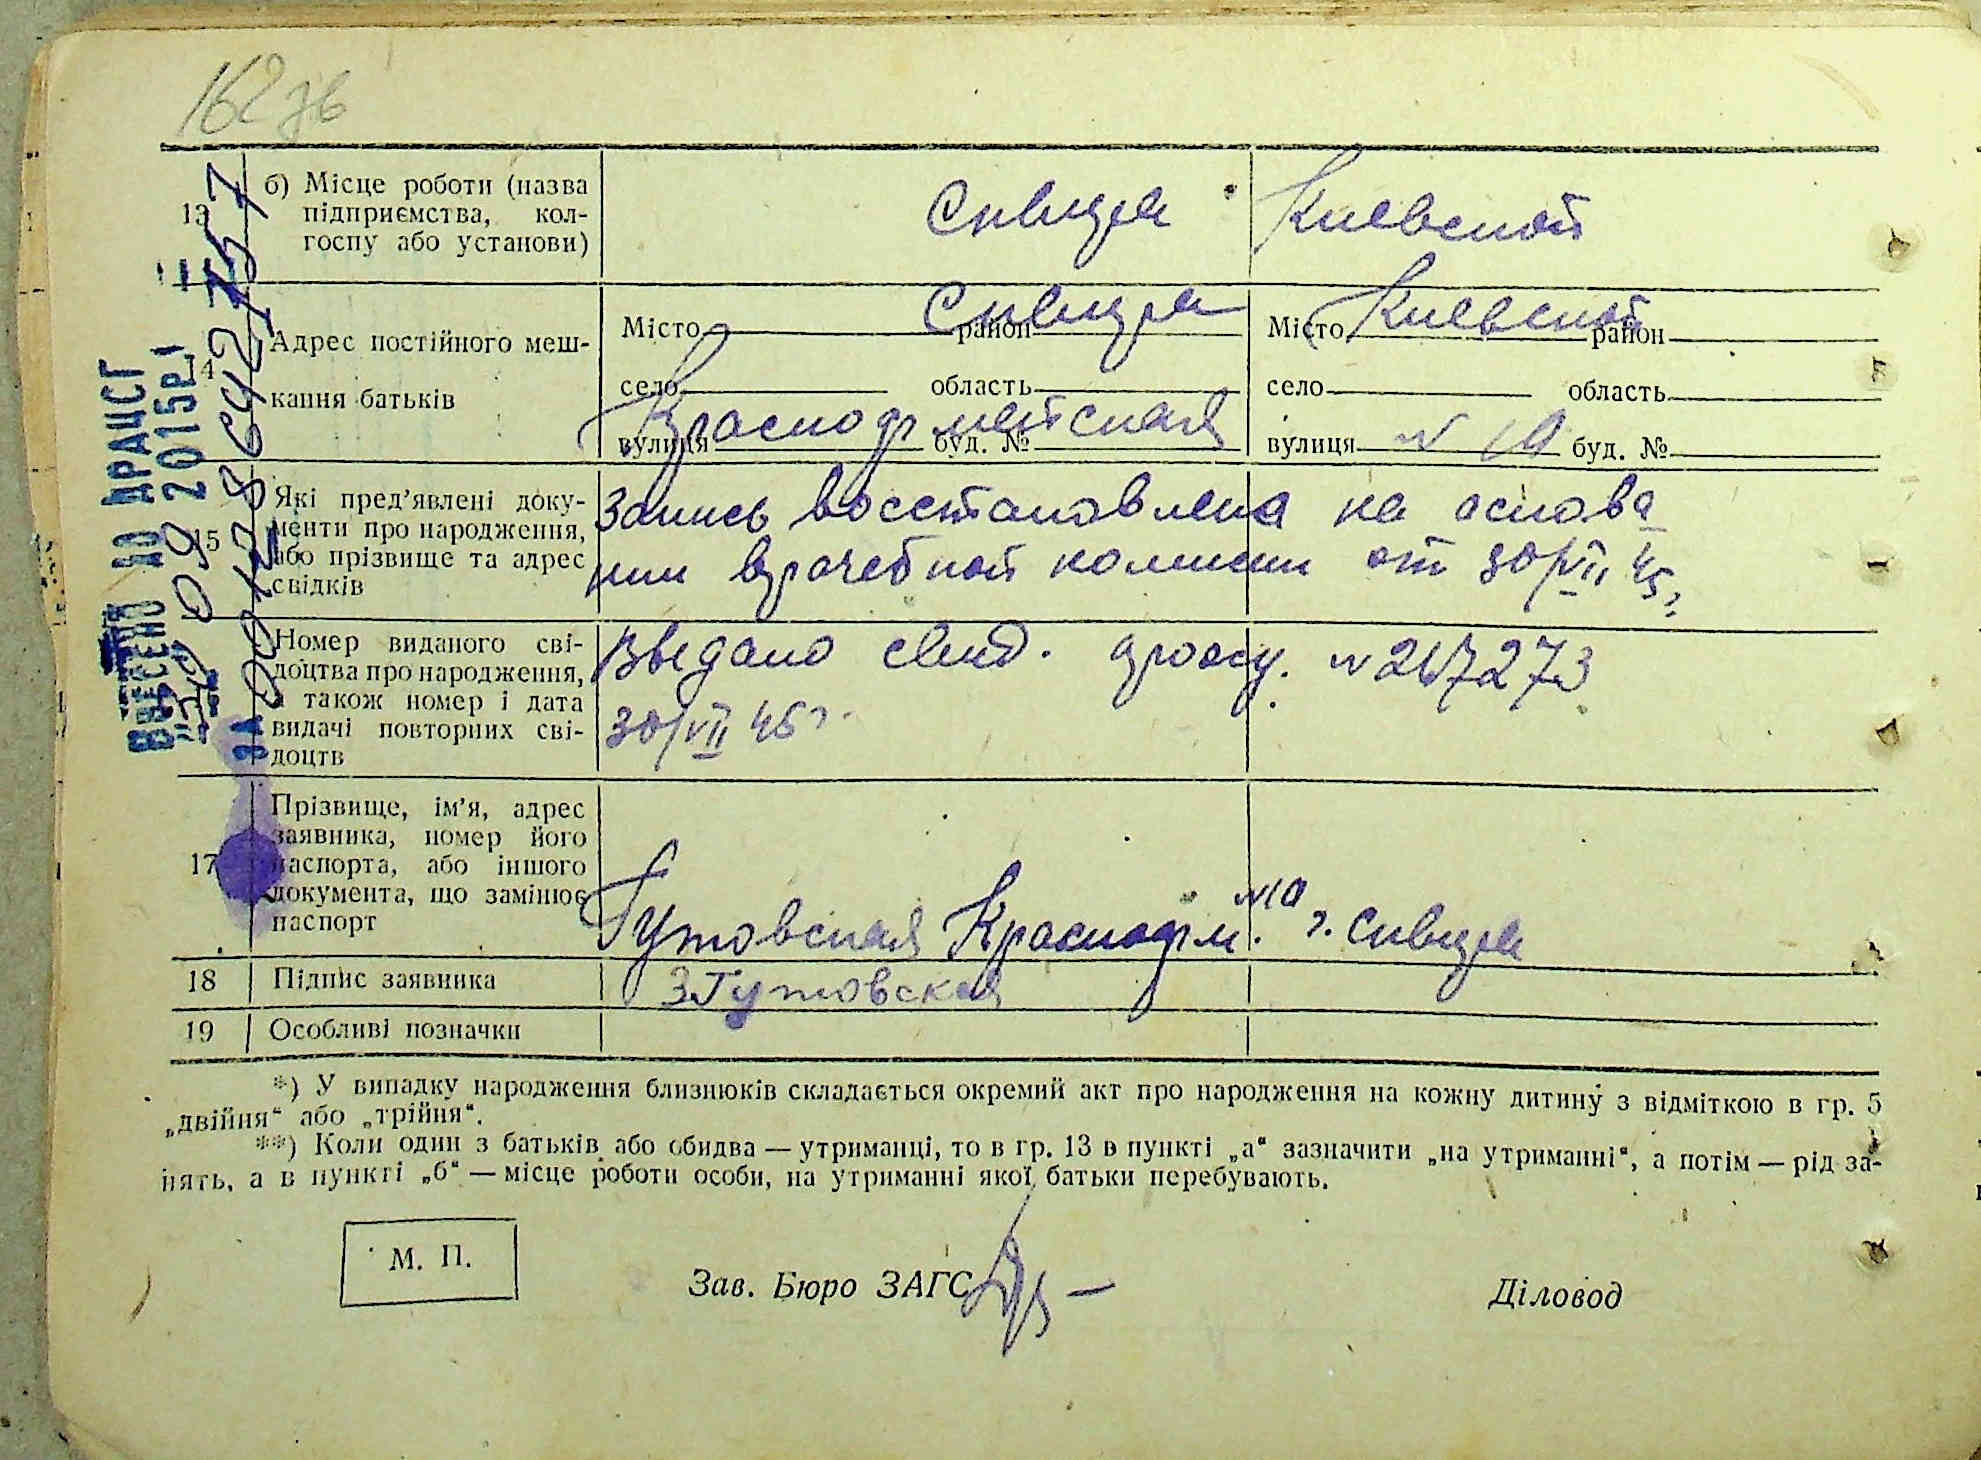 162 зв
13 б) Місце роботи (назва
підприємства, кол-
госпу або установи)
Сквира Киевской
14 Адрес постійного меш-
кання батьків
Місто Сквира район Місто Киевской район
село область село область
вулиця Красноармейская буд. № вулиця № 10 буд. №
15 Які пред’явлені доку-
менти про народження,
або прізвище та адрес
свідків
Запись восстановлена на основа
нии врачебной комисии от 30/VII 45г
Номер виданого сві-
доцтва про народження,
а також номер і дата
видачі повторних сві-
доцтв
Выдано свид. №
30/VII 45г.
17 Прізвище, ім’я, адрес
заявника, номер його
паспорта, або іншого
документа, що замінює
паспорт
Гутовская Красноарм. №10 г. Сквира
18 Підпис заявника ЗГутовская
19 Особливі позначки
*) У випадку народження близнюків складається окремий акт про народження на кожну дитину з відміткою в гр. 5
„двійня“ або „трійня“.
**) Коли один з батьків або обидва — утриманці, то в гр. 13 в пункті „а“ зазначити „на утриманні“, а потім — рід за-
нять, а в пункті „б“ — місце роботи особи, на утриманні якої батьки перебувають.
М. П.
Зав. Бюро ЗАГС Діловод
ВНЕСЕНО ДО ДРАЦСГ
09 2015р.
ЗА №